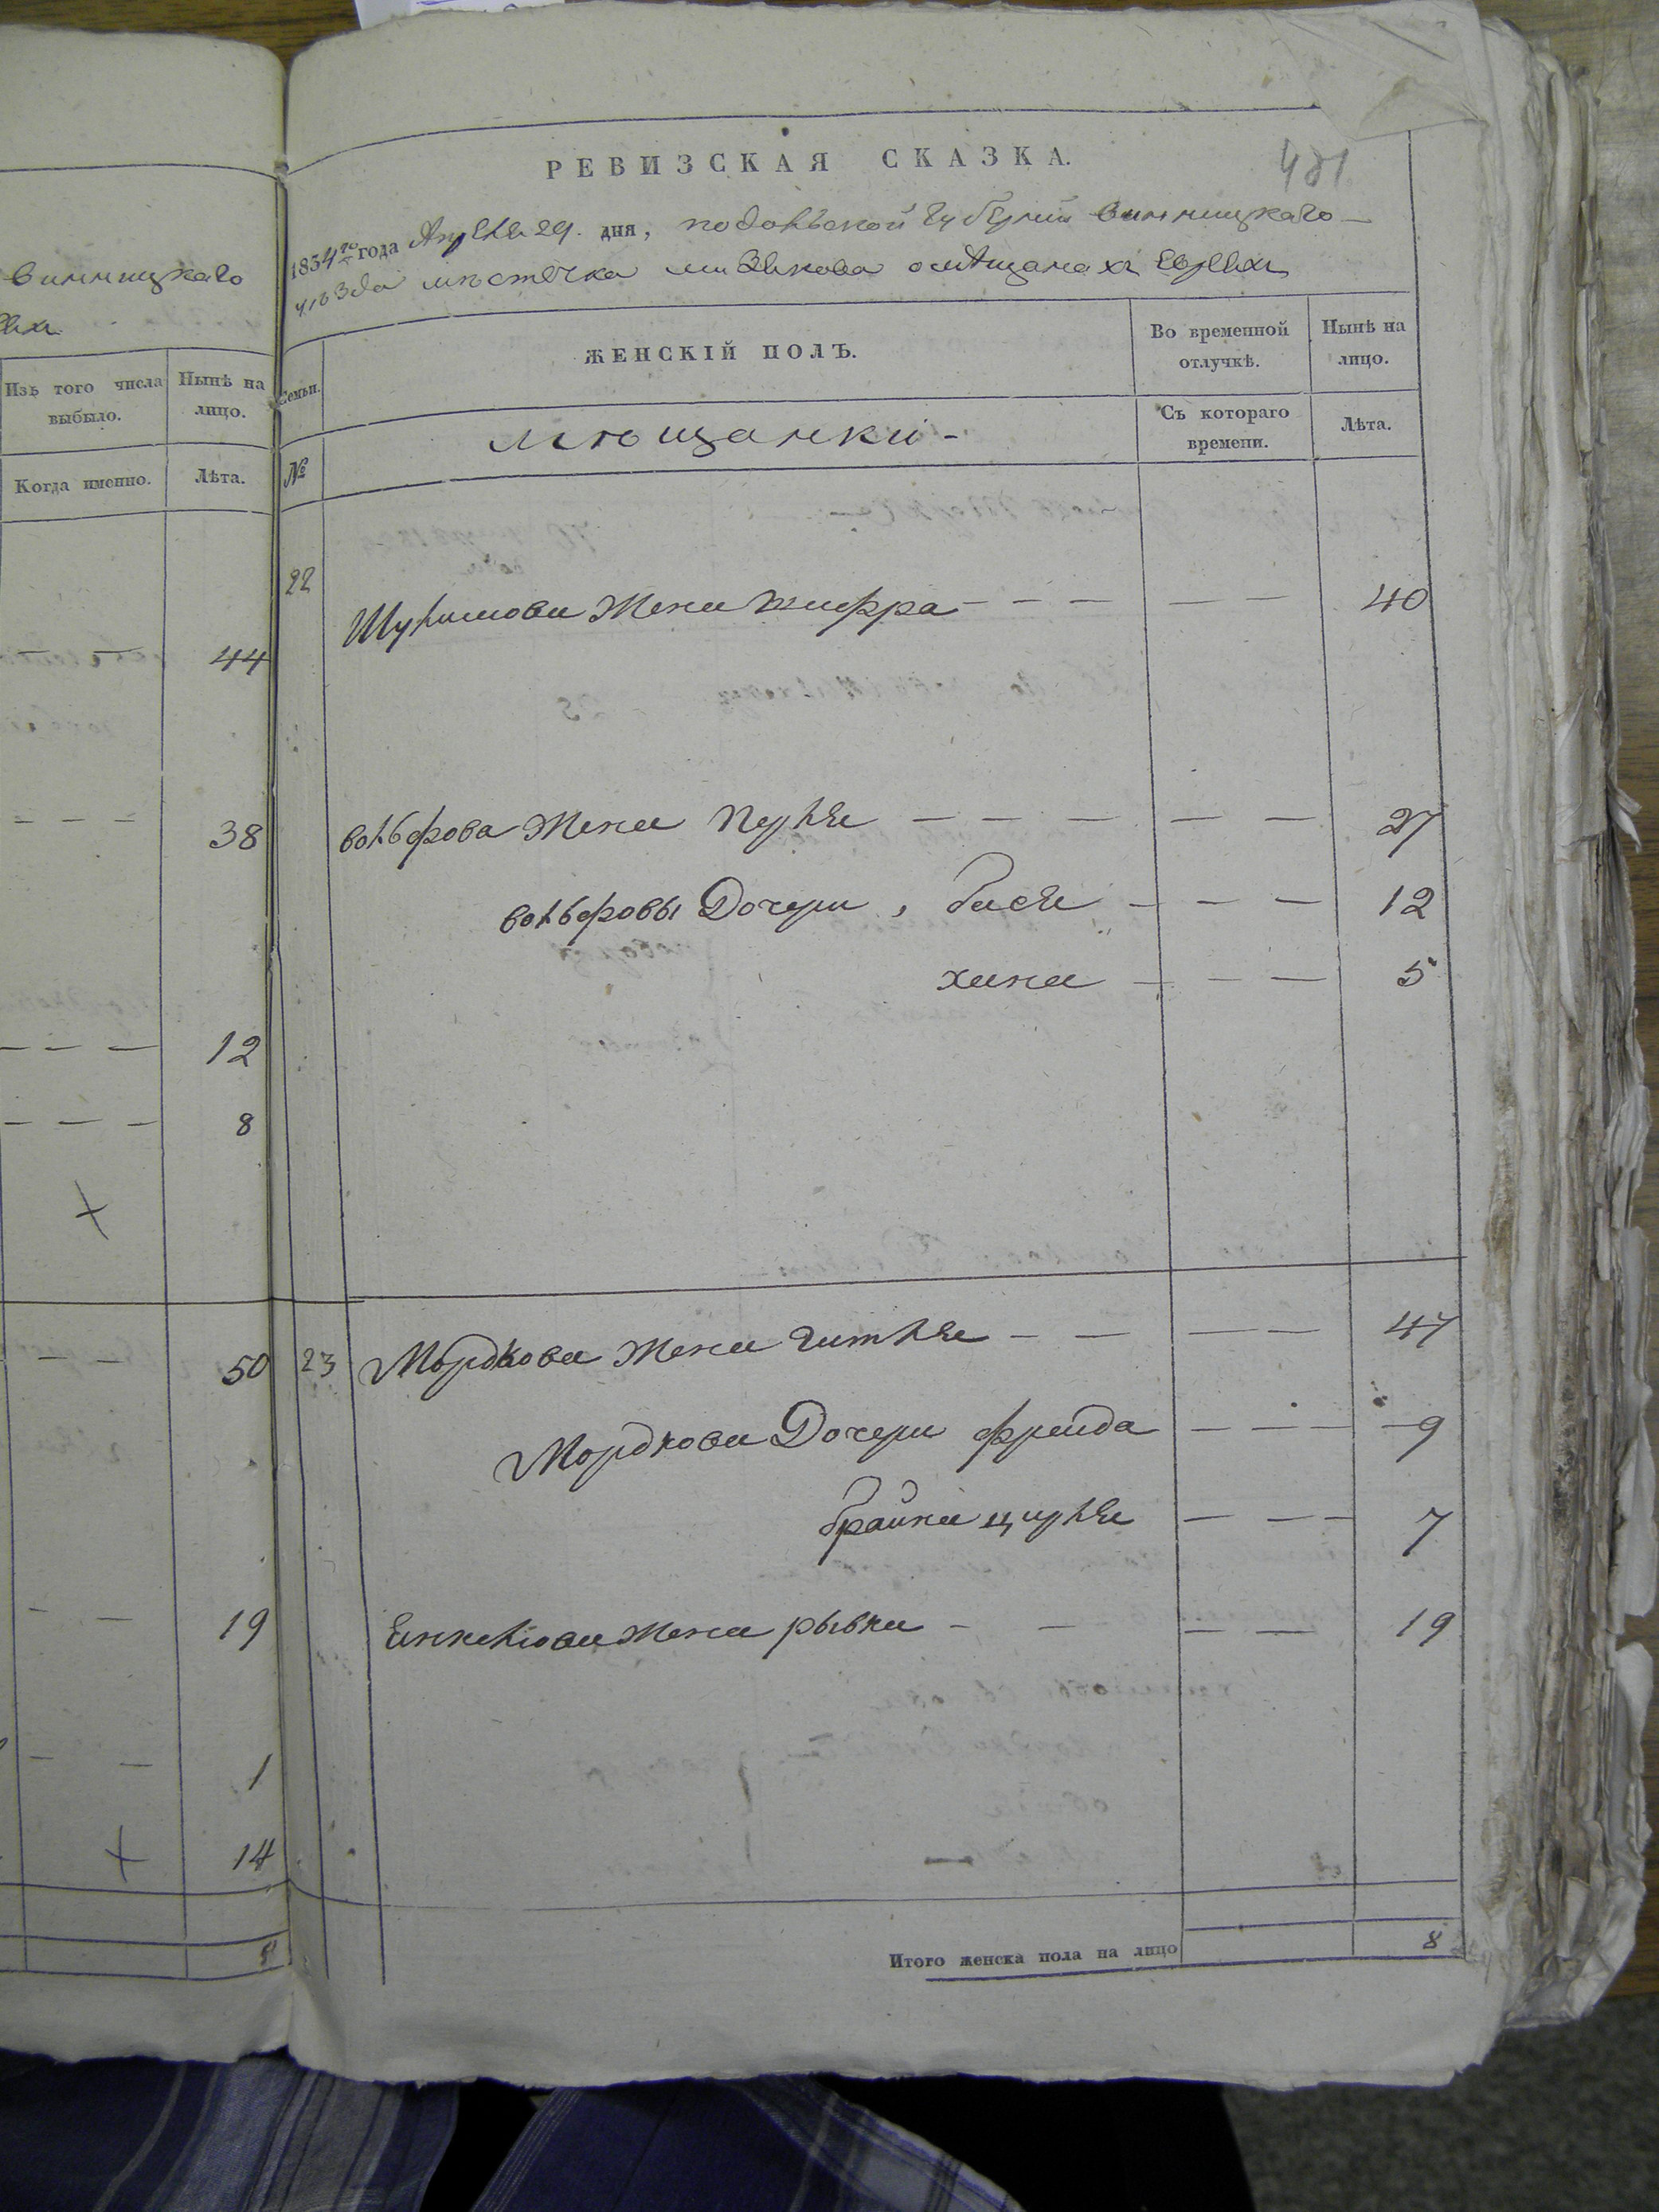 Винницкаго
Изъ того числа выбыло.
Нынѣ на лицо.
Когда именно.
Лѣта.
44
38
12
8
50
19
1
14
8
РЕВИЗСКАЯ СКАЗКА.
481
1834го года Апреля 29. дня, подольской губернии винницкаго
уѣзда мѣстечка о мѣщанахъ Евреяхъ
Семьи.
ЖЕНСКІЙ ПОЛЪ.
Во временной отлучкѣ.
Нынѣ на лицо.
№
мѣщанки
Съ котораго времени.
Лѣта.
22
Шулимова Жена шифра 40
вольфова Жена перля 27
вольфовы Дочери, бася 12
хана 5
23 Мордкова Жена гитля 47
Мордкова Дочери фрейда 9
брайна цирля 7
Янкелева Жена рывка 19
Итого женска пола на лицо 8